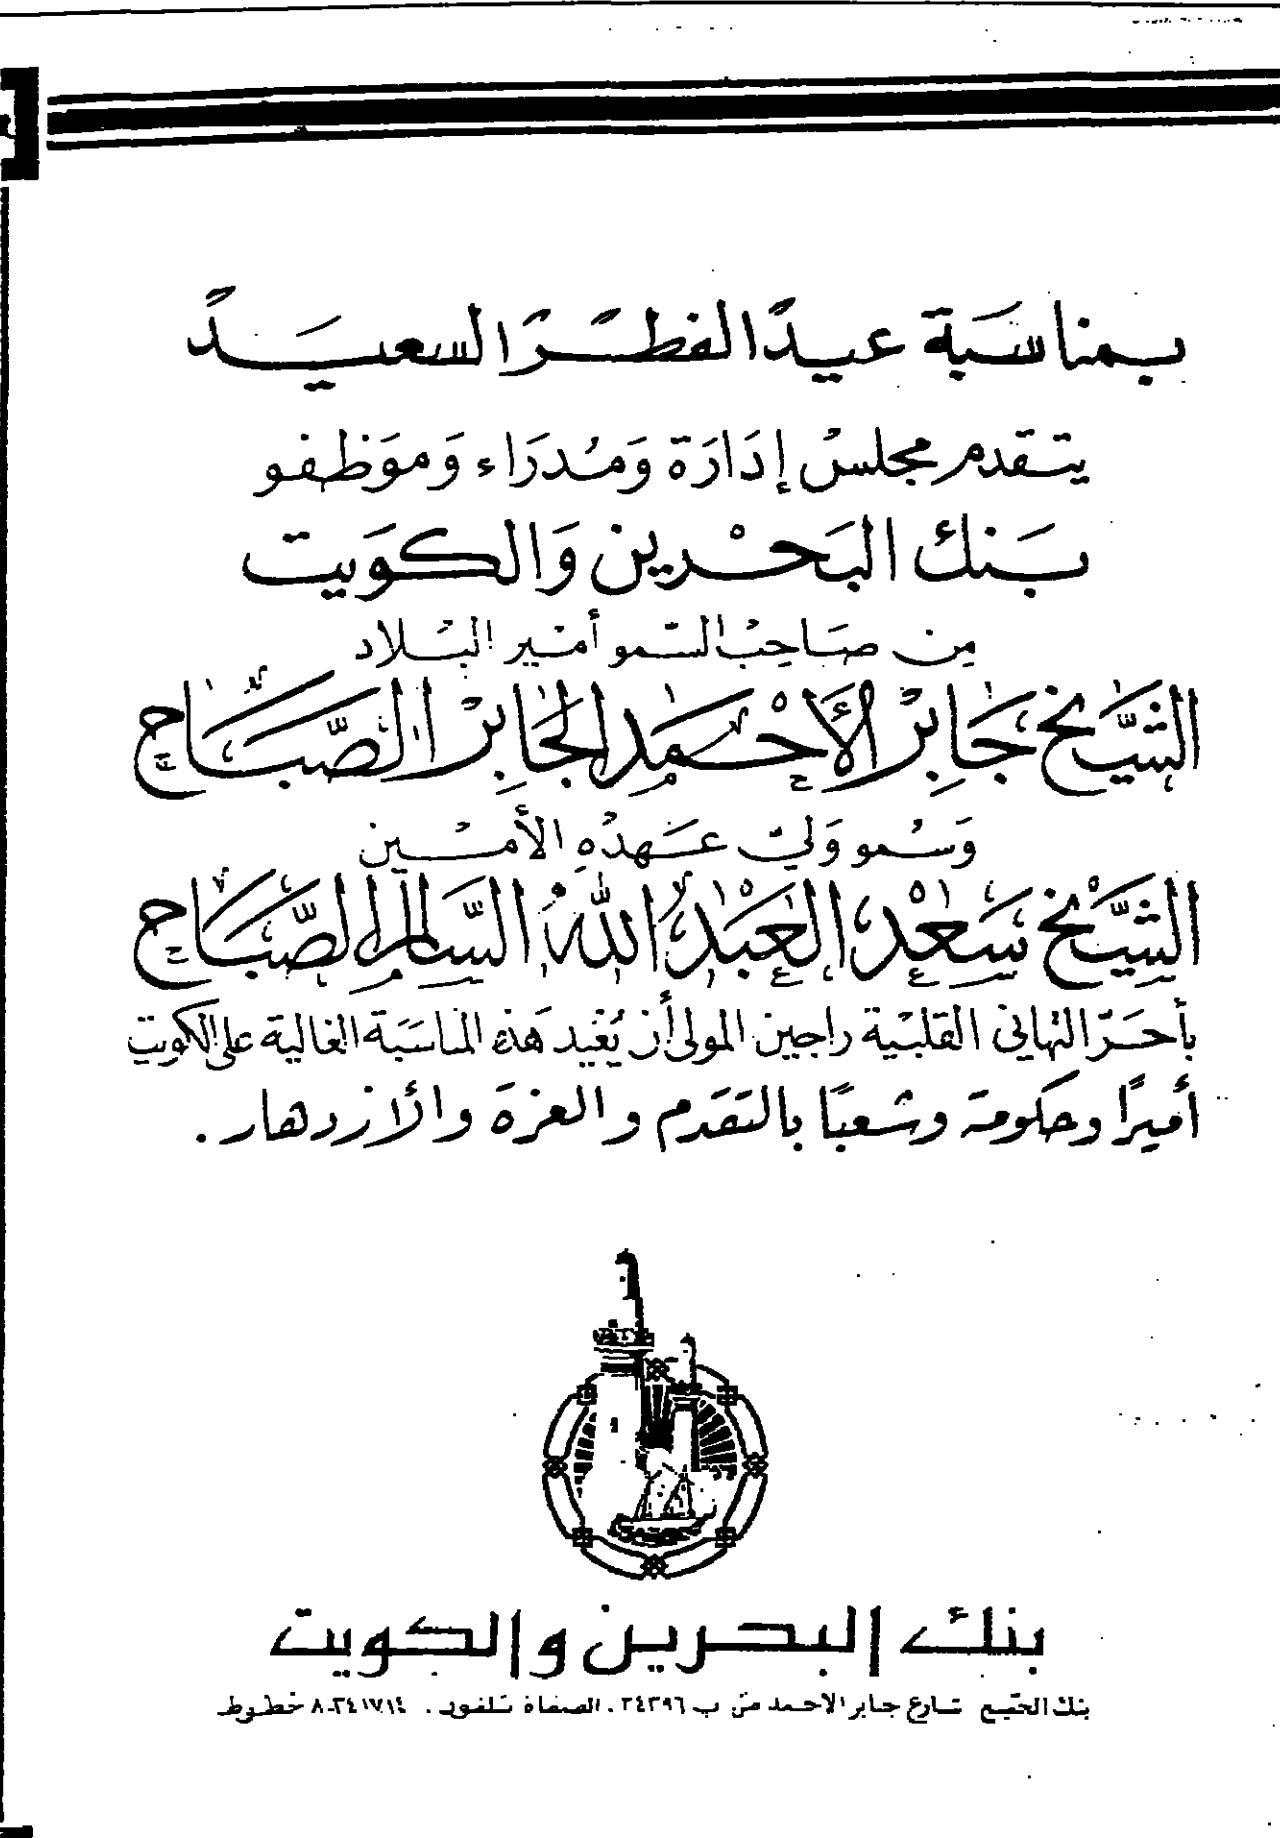 بمناسبة عيد الفطر السعيد
يتقدم مجلس إدارة ومدراء وموظفو
بنك البحرين والكويت
من صاحب السمو أمير البلاد
الشيخ جابر الأحمد الجابر الصباح
وسمو ولي عهده الأمين
الشيخ سعد العبد الله السالم الصباح
بأحر التهاني القلبية راجين المولى أن يعيد هذه المناسبة الغالية على الكويت
أميرًا وحكومة وشعبًا بالتقدم والعزة والازدهار.
بنك البحرين والكويت
بنك الجميع شارع جابر الاحمد ص ب ٢٤٣٩٦. الصفاة تلفون. ٢٤١٧١٤-٨ خطوط